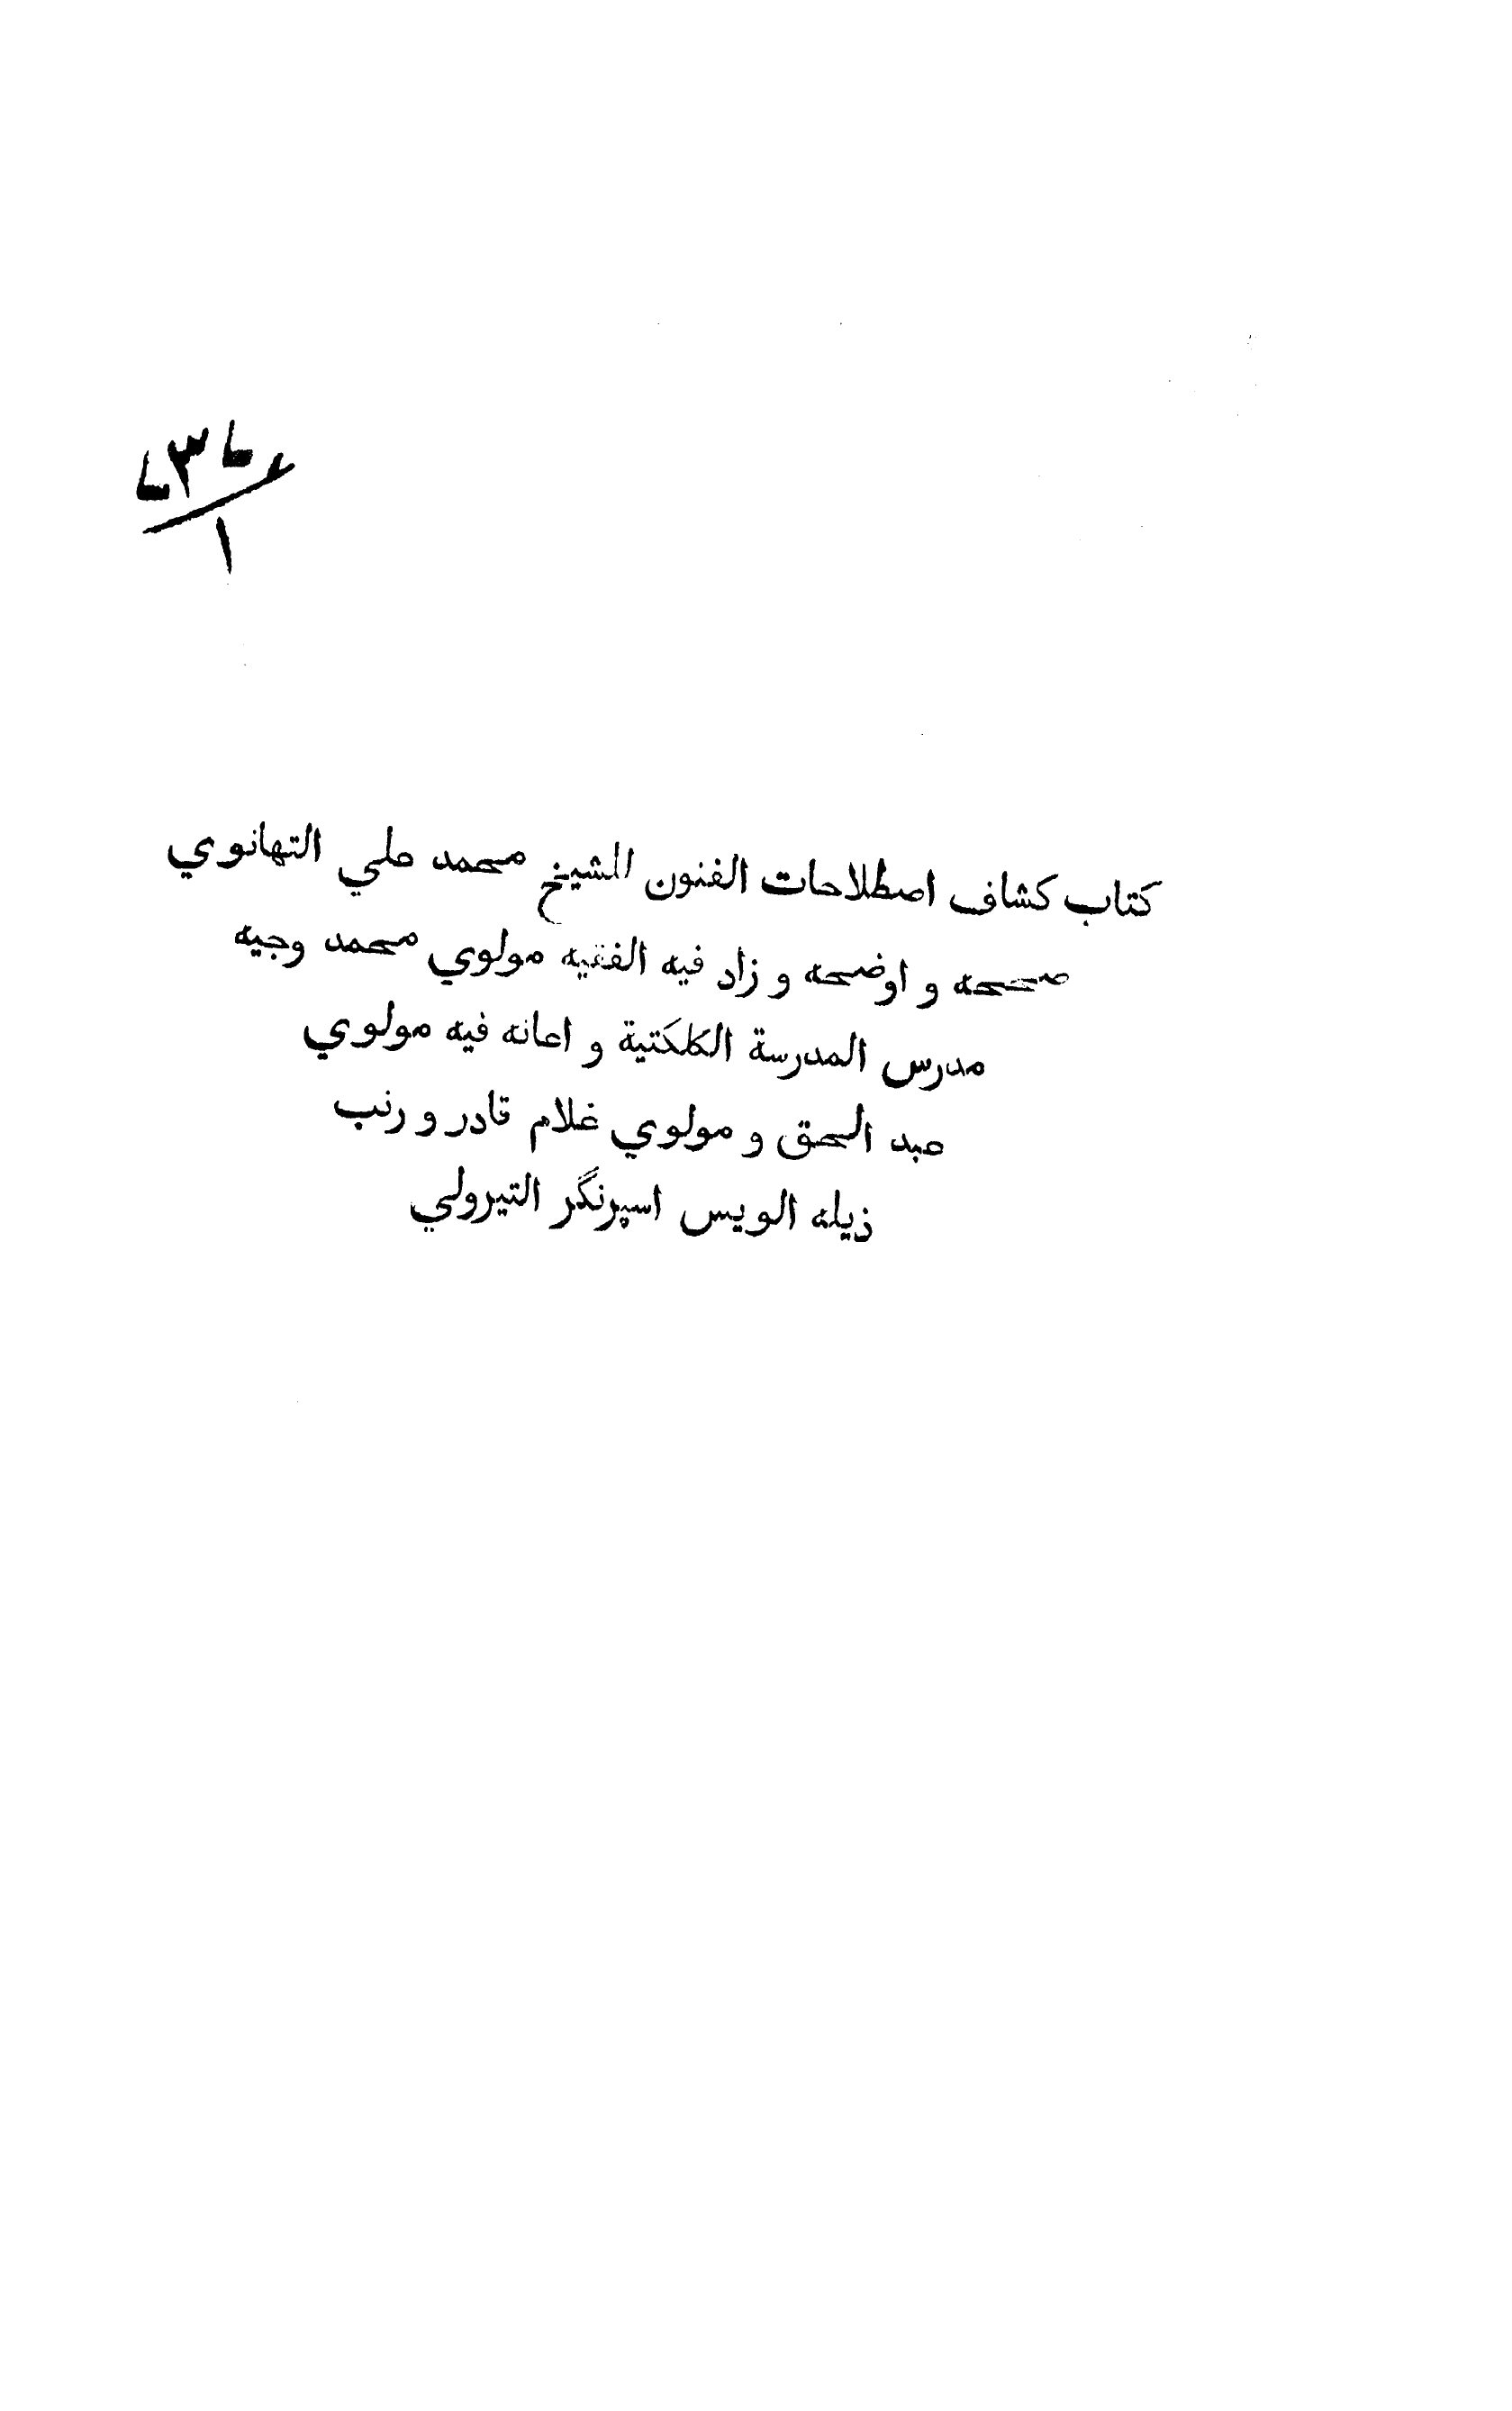 كتاب كشاف اصطلاحات الفنون للشيخ محمد علي التهانوي
صححه و اوضحه و زاد فيه الفقيه مولوي محمد وجيه
مدرس المدرسة الكلكتية و اعانه فيه مولوي
عبد الحق و مولوي غلام قادر و رتب
ذيله الويس اسپرنگر التيرولي